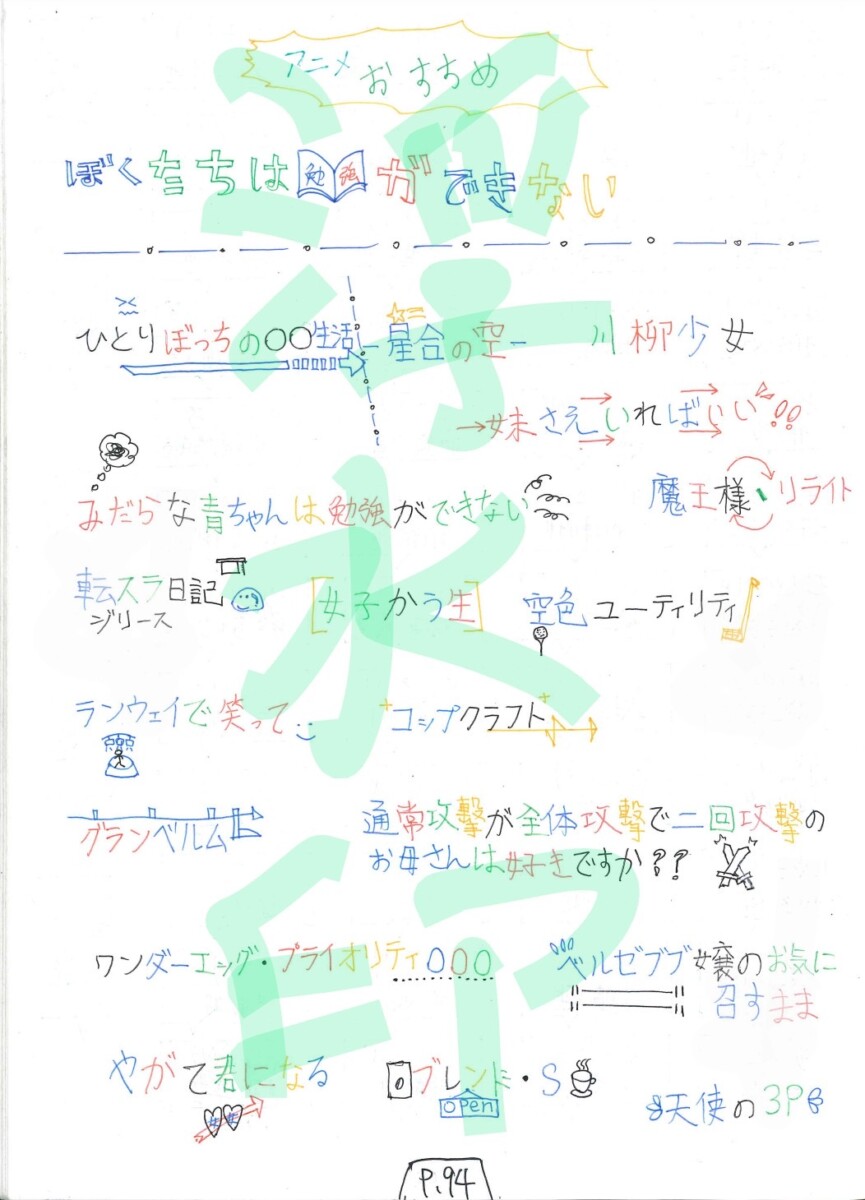 アニメ おすすめ
ぼくたちは勉強ができない
ひとりぼっちの○○生活
-星合の空-
川柳少女
→妹さえいればいい!!
みだらな青ちゃんは勉強ができない
魔王様、リライト
転スラ日記
ジリース
[女子かう生]
空色ユーティリティ
ランウェイで笑って
コップクラフト
グランベルム
通常攻撃が全体攻撃で二回攻撃の
お母さんは好きですか??
ワンダーエッグ・プライオリティ
ベルゼブブ嬢のお気に
召すまま
やがて君になる
ブレンド・S
open
天使の3P
P.94